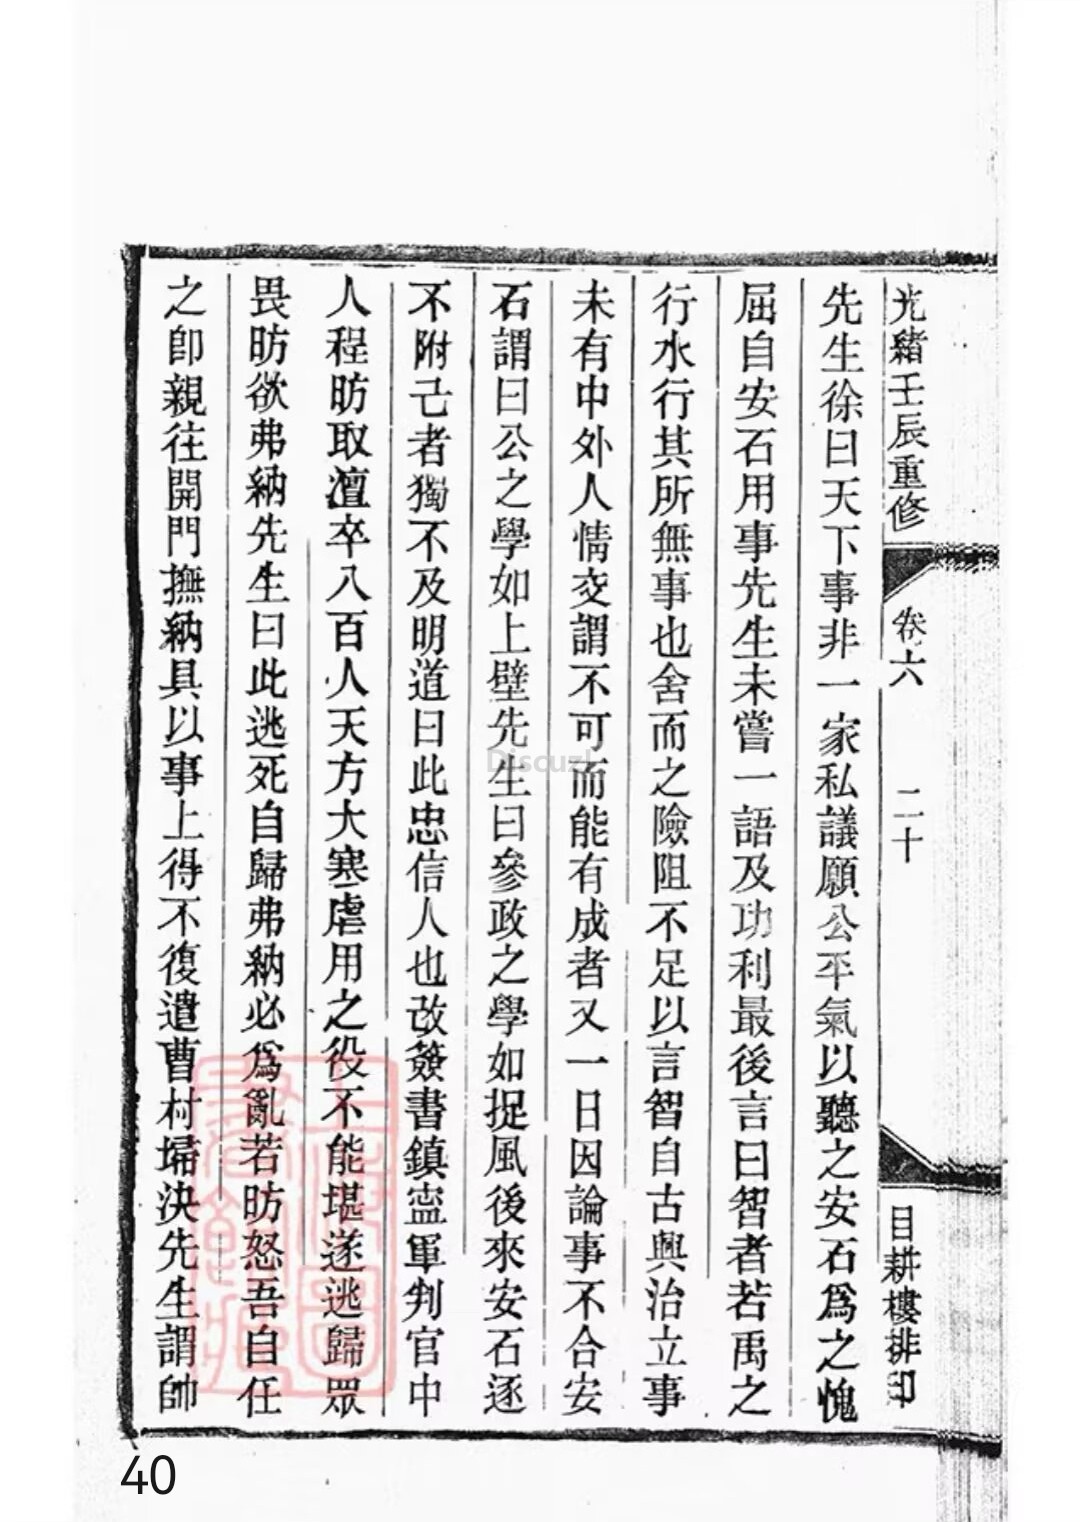 光緒壬辰重修 卷六 二十 目耕樓排印
先生徐曰天下事非一家私議願公平氣以聽之安石爲之愧
屈自安石用事先生未嘗一語及功利最後言曰智者若禹之
行水行其所無事也舍而之險阻不足以言智自古興治立事
未有中外人情交謂不可而能有成者又一日因論事不合安
石謂曰公之學如上壁先生曰參政之學如捉風後來安石逐
不附己者獨不及明道曰此忠信人也改簽書鎮寍軍判官中
人程昉取澶卒八百人天方大寒虐用之役不能堪遂逃歸眾
畏昉欲弗納先生曰此逃死自歸弗納必爲亂若昉怒吾自任
之卽親往開門撫納具以事上得不復遣曹村埽決先生謂帥
上海圖書館藏
Discuz!
40